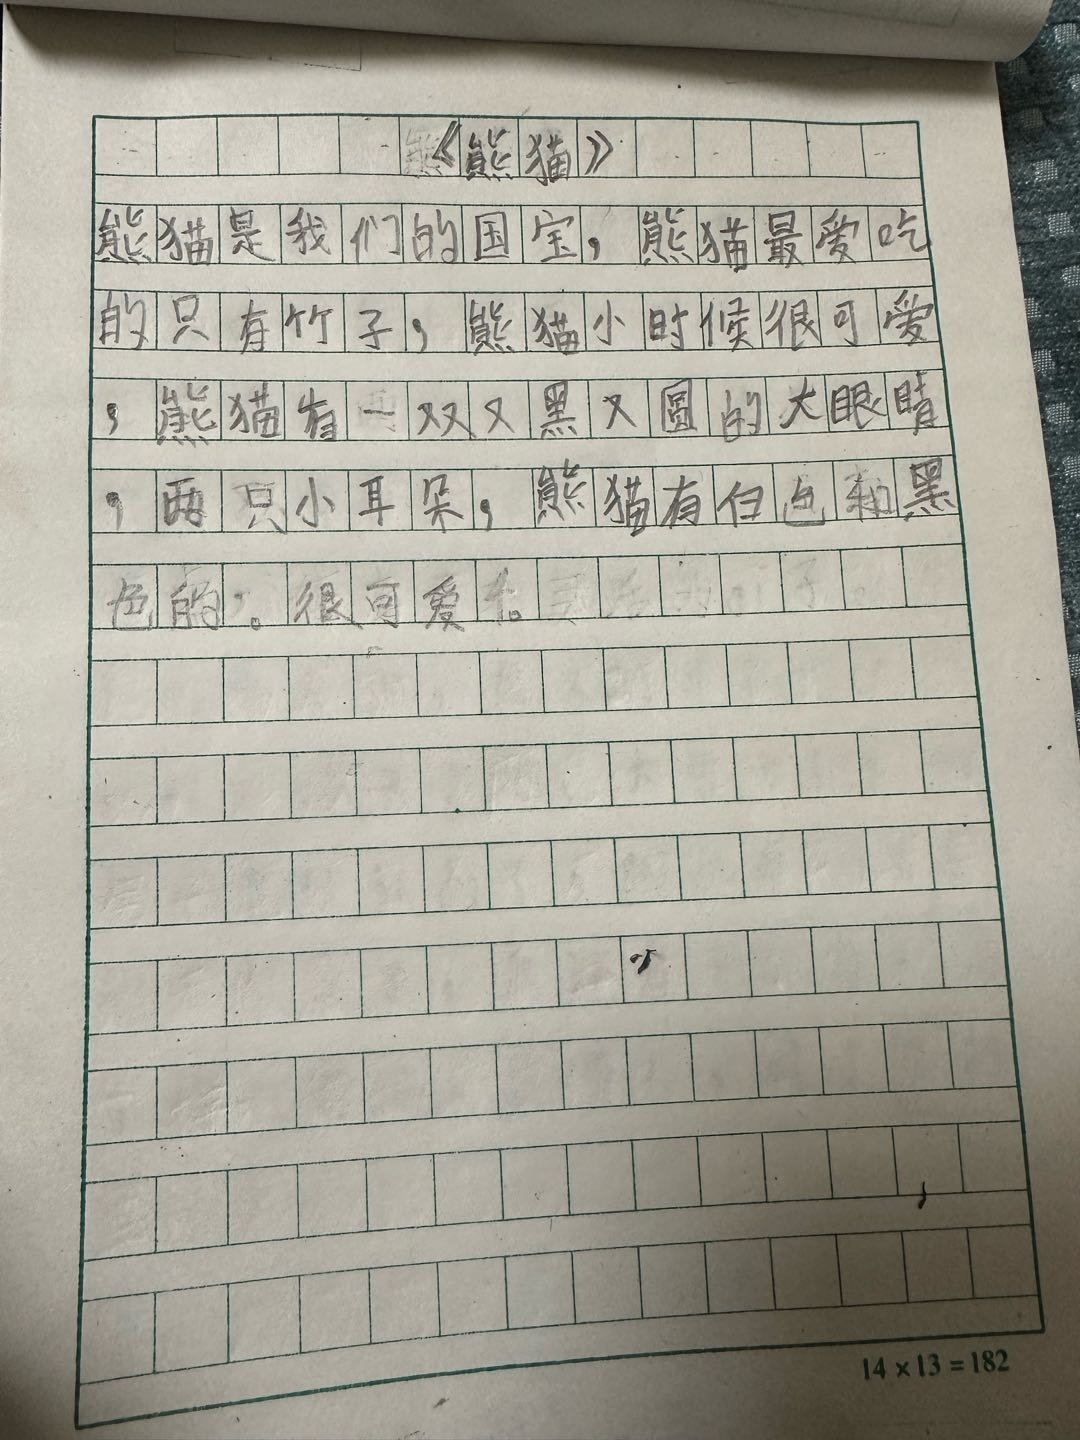 《熊猫》
熊猫是我们的国宝，熊猫最爱吃
的只有竹子，熊猫小时候很可爱
，熊猫有一双又黑又圆的大眼睛
，两只小耳朵，熊猫有白色和黑
色的。很可爱。
14×13=182